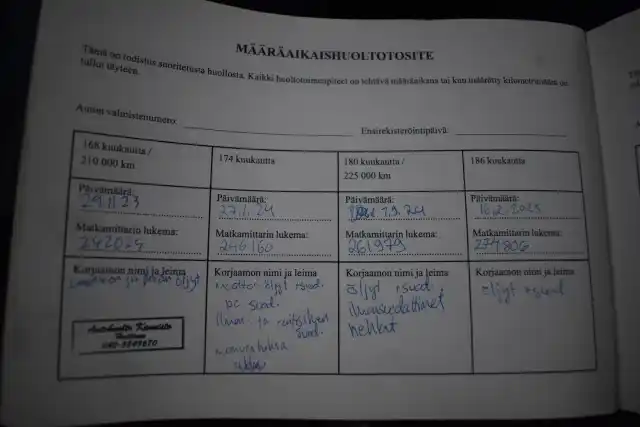 MÄÄRÄAIKAISHUOLTOTOSITE
Tämä on todistus suoritetusta huollosta. Kaikki huoltotoimenpiteet on tehtävä määräaikana tai kun määrätty kilometrimäärä on
tullut täyteen.
Auton valmistenumero:
Ensirekisteröintipäivä:
168 kuukautta /
210 000 km
174 kuukautta
180 kuukautta /
225 000 km
186 kuukautta
Päivämäärä:
29.11.23
Päivämäärä:
27.1.24
Päivämäärä:
1.9.24
Päivämäärä:
18.2.2025
Matkamittarin lukema:
Matkamittarin lukema:
246160
Matkamittarin lukema:
261979
Matkamittarin lukema:
Korjaamon nimi ja leima
öljyt
Autohuolto
Korjaamon nimi ja leima
öljyt +suod.
suod.
Ilman- ja
suod.
Korjaamon nimi ja leima
öljyt +suod.
ilmansuodattimet
hehkut
Korjaamon nimi ja leima
öljyt +suod